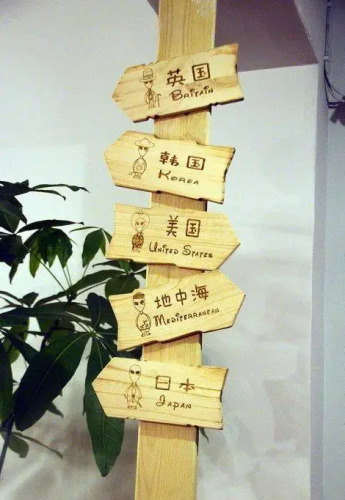 英国
BRITAIN
韩国
KOREA
美国
UNITED STATES
地中海
MEDITERRANEAN
日本
JAPAN